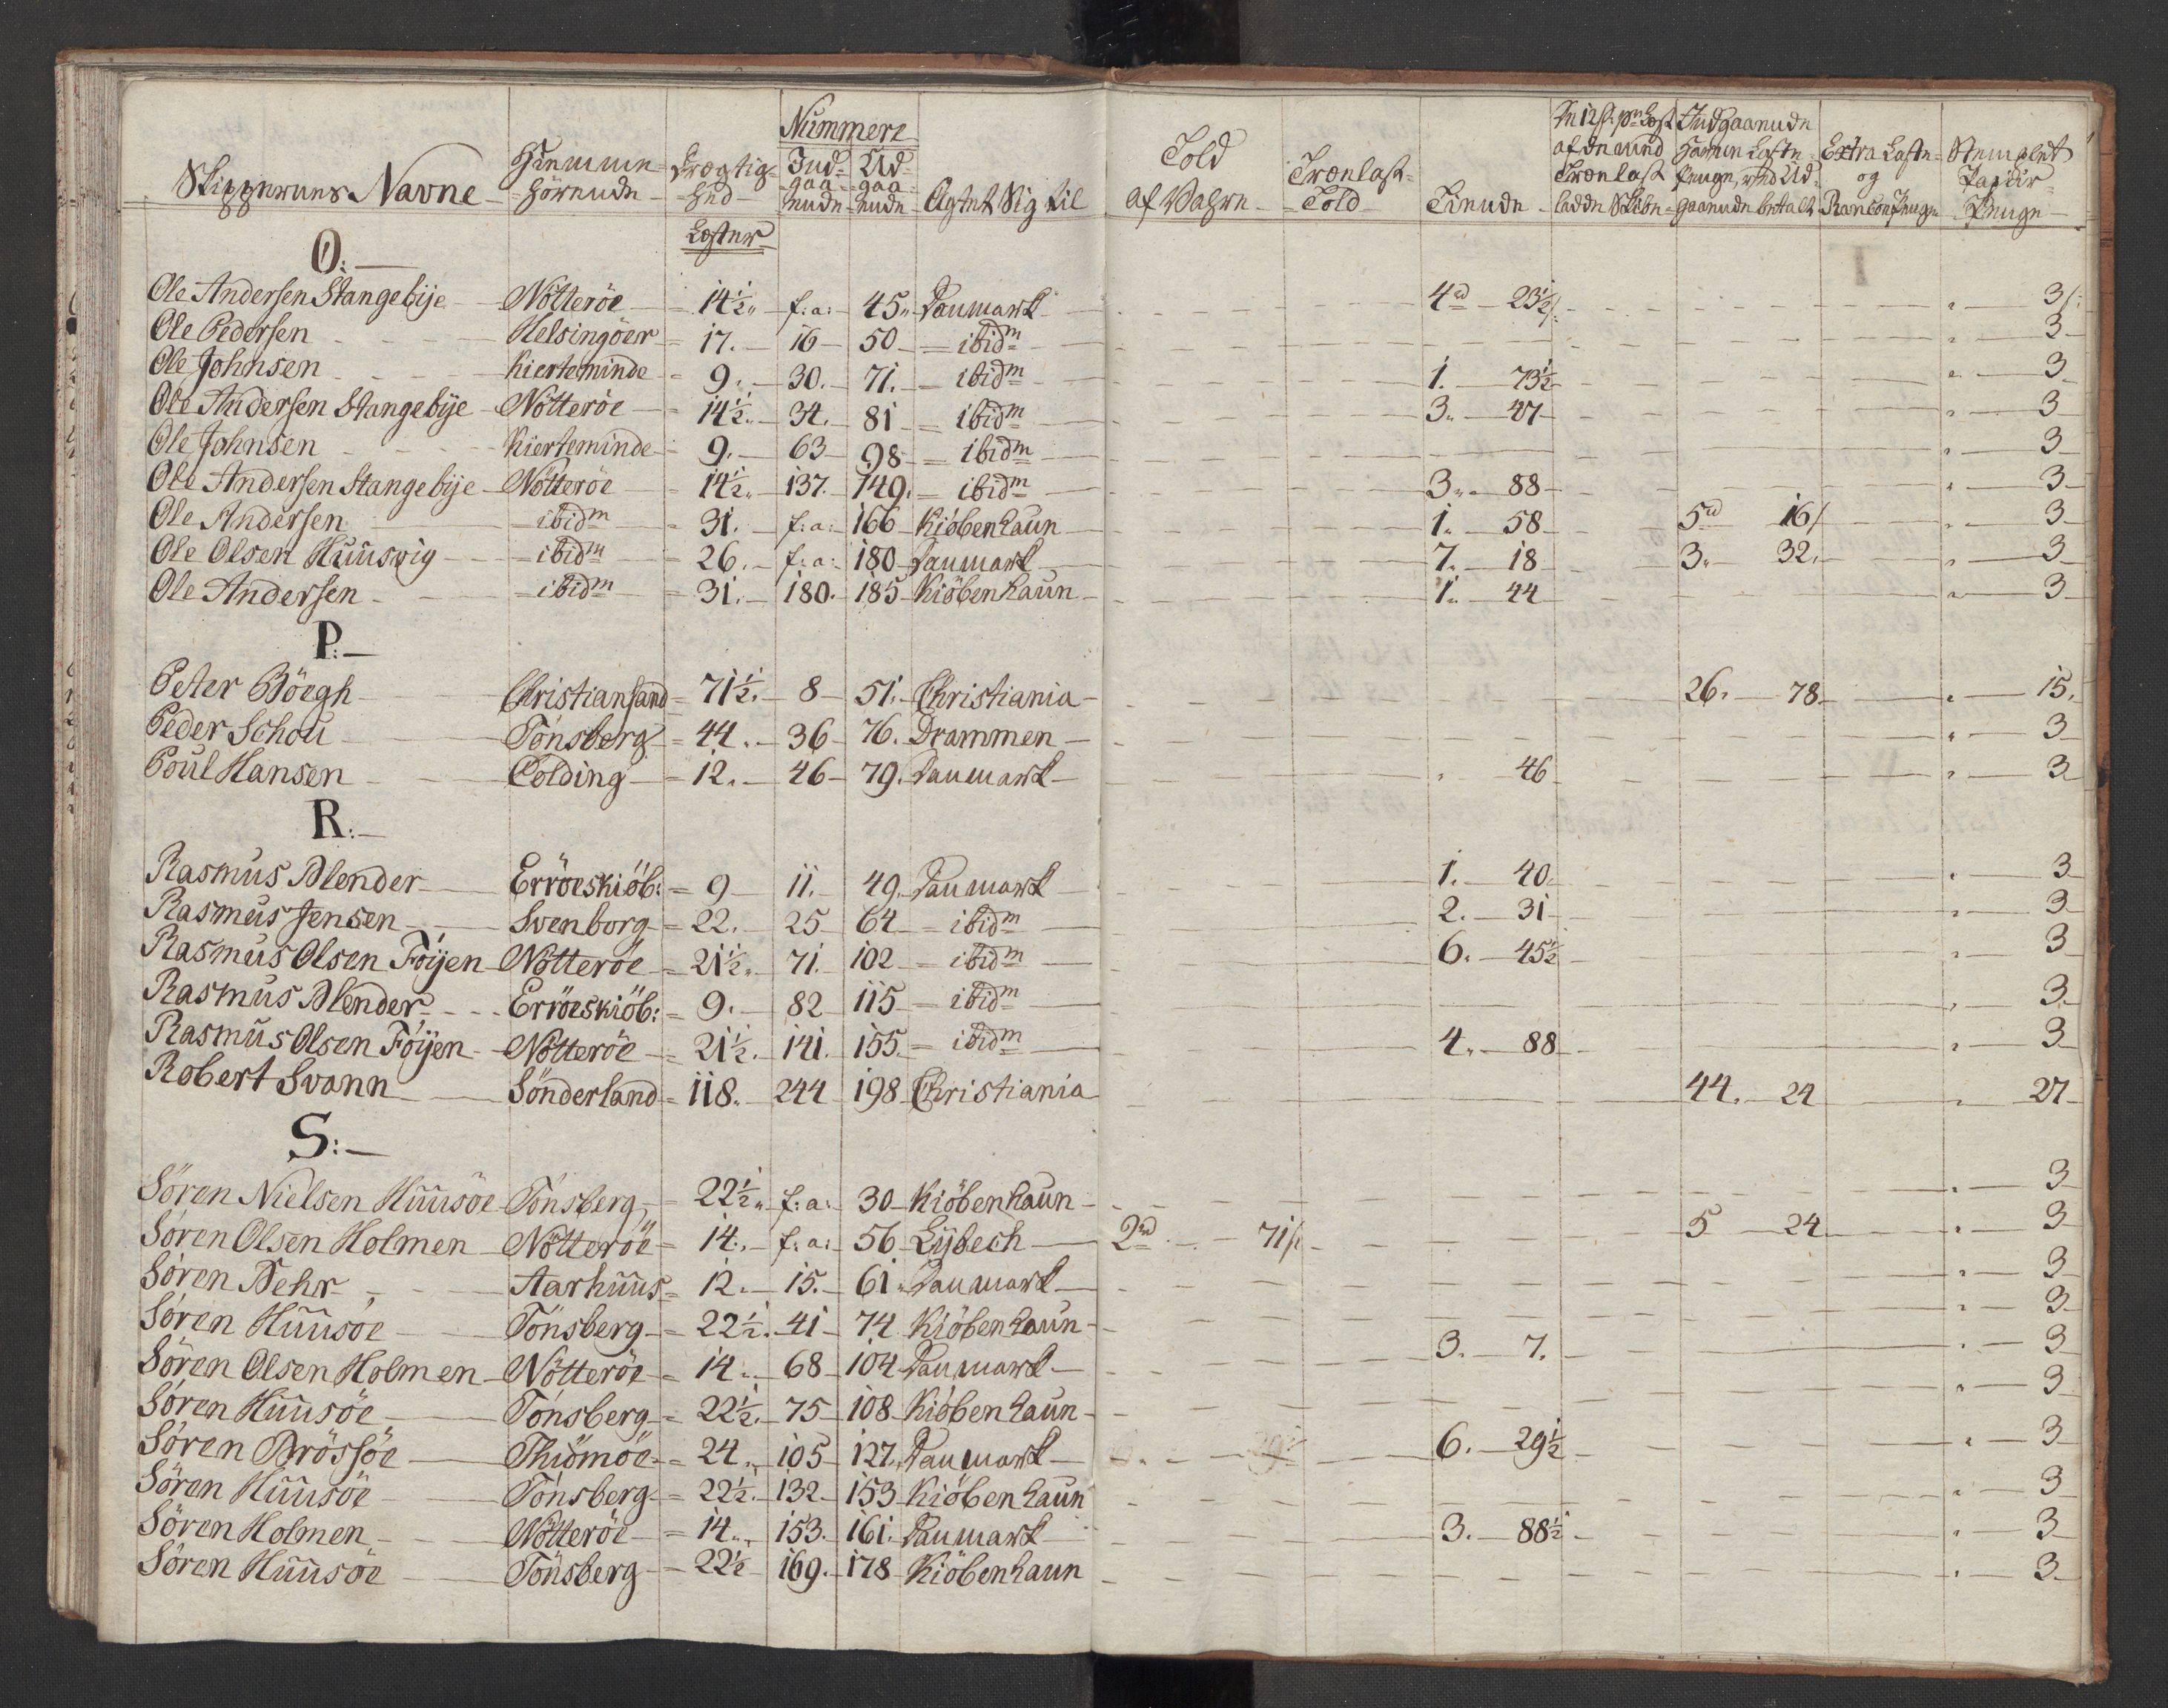 Skippernes Navne Hiemme- Drægtig- Nummere Agtet Sig til Told Trælast- Tiende In 12 s. pr Læst Indgaaende Extra Laste- Stemplet
hörende hed Ind- Ud- af Vahre Told af de med Havne Laste- og Papiir
gaa- gaa- Trælast Penge, ved Ud-
ende ende ladde Skibe gaaende betalt Penge
Læster
O:
Ole Andersen Stangebije Nötteröe 14½ f:a: 45 Danmark 4rd 23½s " 3s:
Ole Pedersen Helsingöer 17. 16 50 ibidm " 3
Ole Johnsen Kierteminde 9. 30. 71. ibidm 1. 73½ " 3
Ole Andersen Stangebije Nötteröe 14½ 34. 81 ibidm 3. 47 " 3
Ole Johnsen Kierteminde 9. 63 98 ibidm " 3
Ole Andersen Stangebije Nötteröe 14½ 137. 149. ibidm 3. 88 " 3
Ole Andersen ibidm 31. f:a: 166 Kiöbenhaun 1. 58 5rd 16s " 3
Ole Olsen Huusvig ibidm 26. f:a: 180 Danmark 7. 18 3. 32. " 3
Ole Andersen ibidm 31. 180. 185 Kiöbenhaun 1. 44 " 3
P:
Peter Böegh Christiansand 71½. 8 51. Christiania 26. 78 " 15.
Peder Schou Tönsberg 44. 36 76. Drammen " 3
Poul Hansen Colding 12. 46 79. Danmark " 46 " 3
R:
Rasmus Blender Erröeskiöb: 9 11. 49. Danmark 1. 40. " 3
Rasmus Jensen Svenborg 22. 25 64 ibidm 2. 31 " 3
Rasmus Olsen Föijen Nötteröe 21½ 71. 102 ibidm 6. 45½ " 3
Rasmus Blender Erröeskiöb: 9. 82 115 ibidm " 3.
Rasmus Olsen Föijen Nötteröe 21½. 141. 155. ibidm 4. 88 " 3
Robert Svann Sönderland 118. 244 198 Christiania 44. 24 " 27
S:
Sören Nielsen Huusöe Tönsberg 22½ f:a: 30 Kiöbenhaun " 3
Sören Olsen Holmen Nötteröe 14. f:a: 56 Lybech 2rd 71s 5 24 " 3
Sören Behr Aarhuus 12. 15. 61. Danmark " 3
Sören Huusöe Tönsberg 22½. 41 74 Kiöbenhaun " 3
Sören Olsen Holmen Nötteröe 14. 68 104 Danmark 3. 7. " 3
Sören Huusöe Tönsberg 22½. 75 108 Kiöbenhaun " 3
Sören Brössöe Thiömöe 24. 105 127. Danmark 6. 29½ " 3
Sören Huusöe Tönsberg 22½. 132 153 Kiöbenhaun " 3
Sören Holmen Nötteröe 14. 153. 161. Danmark 3. 88½ " 3
Sören Huusöe Tönsberg 22½ 169. 178 Kiöbenhaun " 3